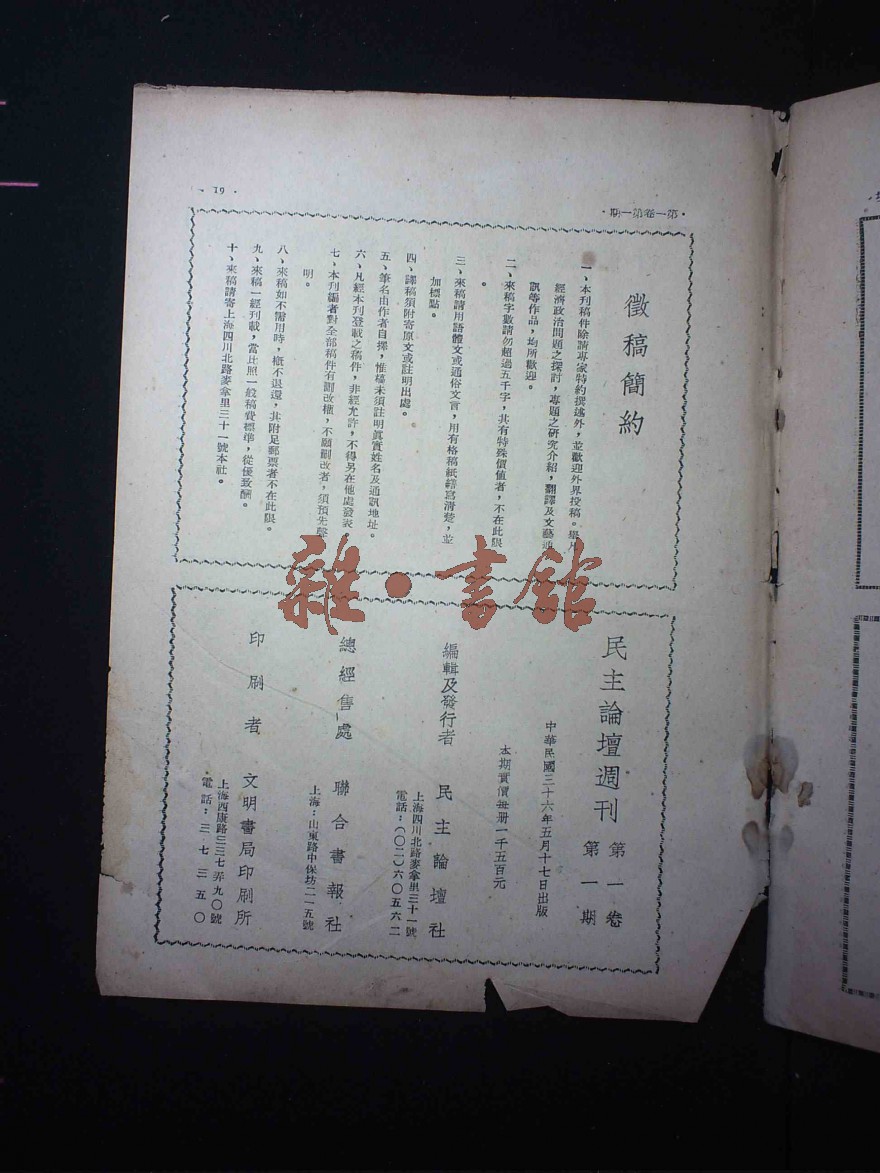 ·第一卷第一期·
· 19 ·
徵稿簡約
一、本刊稿件除請專家特約撰述外，並歡迎外界投稿。舉凡
經濟政治問題之探討，專題之研究介紹，翻譯及文藝通
訊等作品，均所歡迎。
二、來稿字數請勿超過五千字，其有特殊價值者，不在此限
。
三、來稿請用語體文或通俗文言，用有格稿紙繕寫清楚，並
加標點。
四、譯稿須附寄原文或註明出處。
五、筆名由作者自擇，惟稿末須註明眞實姓名及通訊地址。
六、凡經本刊登載之稿件，非經允許，不得另在他處發表
七、本刊編者對全部稿件有刪改權，不願刪改者，須預先聲
明。
八、來稿如不需用時，槪不退還，其附足郵票者不在此限。
九、來稿一經刊載，當比照一般稿費標準，從優致酬。
十、來稿請寄上海四川北路麥拿里三十一號本社。
民主論壇週刊 第一卷
第一期
中華民國三十六年五月十七日出版
本期實價每册一千五百元
編輯及發行者 民主論壇社
上海四川北路麥拿里三十一號
電話：（〇二）六〇五六二
總經售處 聯合書報社
上海：山東路中保坊二一五號
印刷者 文明書局印刷所
上海西康路三三七弄九〇號
電話：三七三五〇
雜·書館